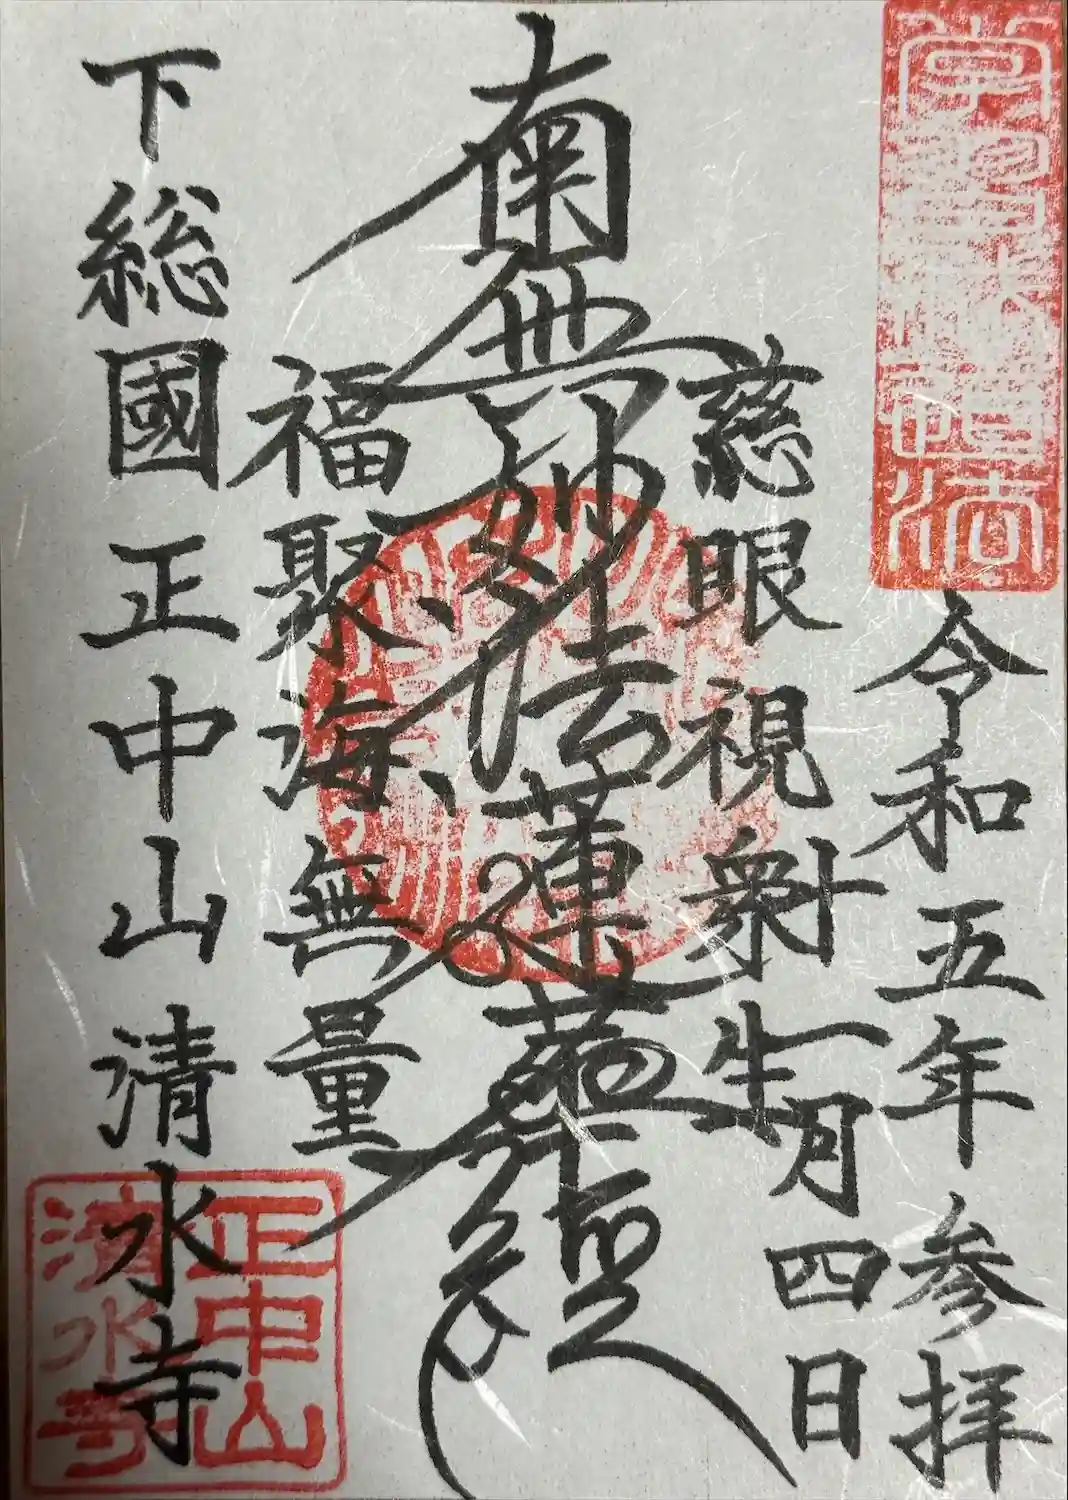 令和五年 参拝
十一月四日
慈眼視衆生
南無妙法蓮華経
福聚海無量
下総國 正中山 清水寺
正中山
清水寺